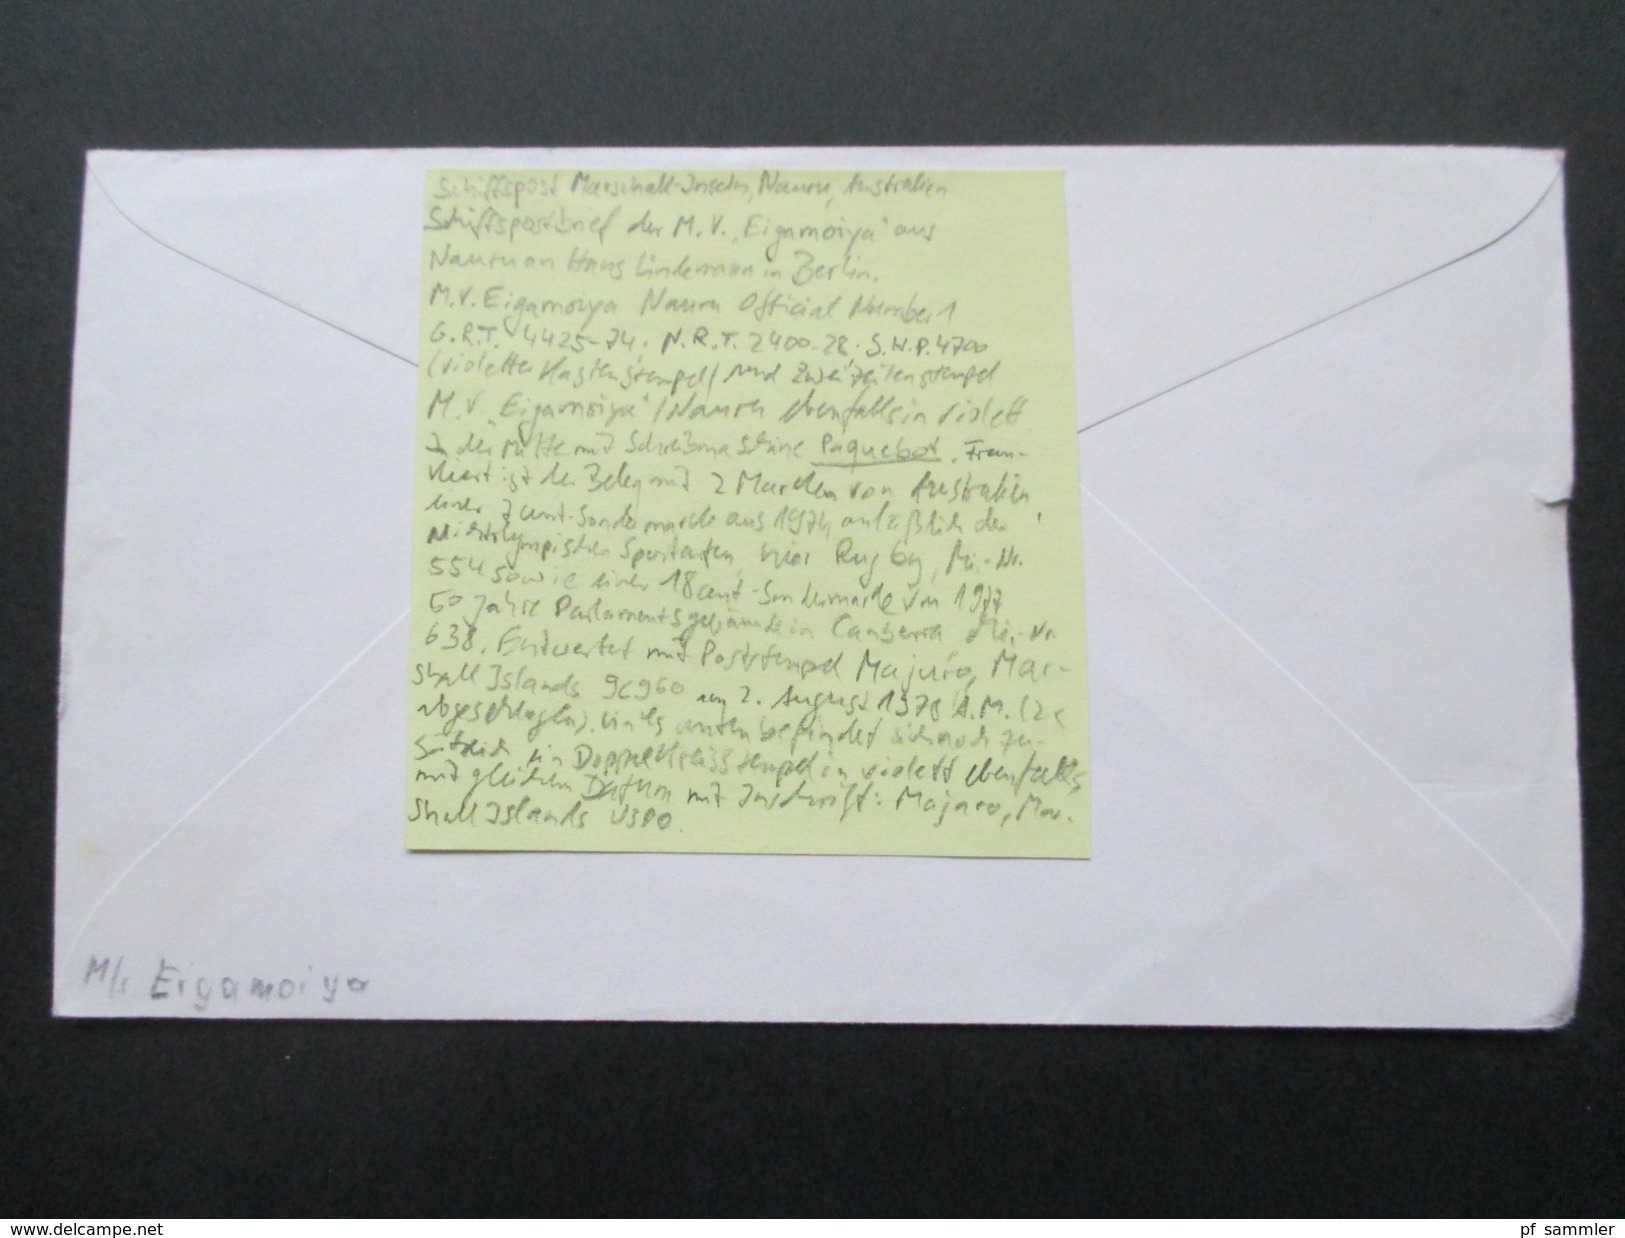 Schiffspost Marschall-Inseln, Nauru, Australien
Schiffspostbrief der M.V. „Eigamoiya" aus
Nauru an Hans Lindemann in Berlin.
M.V. Eigamoiya Nauru Official Number 1
G.R.T. 4425-74, N.R.T. 2400-28, S.H.P. 4700
(violetter Kastenstempel) und Zweizeilenstempel
M.V. „Eigamoiya" / Nauru ebenfalls in violett.
In der Mitte mit Schreibmaschine Paquebot. Fran-
kiert ist der Beleg mit 2 Marken von Australien,
einer 7 cent-Sondermarke aus 1974 anläßlich der
Nichtolympischen Sportarten, hier Rugby, Mi.-Nr.
554 sowie einer 18 cent-Sondermarke von 1977
50 Jahre Parlamentsgebäude in Canberra Mi.-Nr.
638. Entwertet mit Poststempel Majuro, Mar-
shall Islands 96960 am 2. August 1978 A.M. (2x
abgeschlagen). Links unten befindet sich noch zu-
sätzlich ein Doppelkreisstempel in violett ebenfalls
mit gleichem Datum mit Inschrift: Majaro, Mar.
shall Islands USPO.
M/s Eigamoiya
www.delcampe.net
pf_sammler